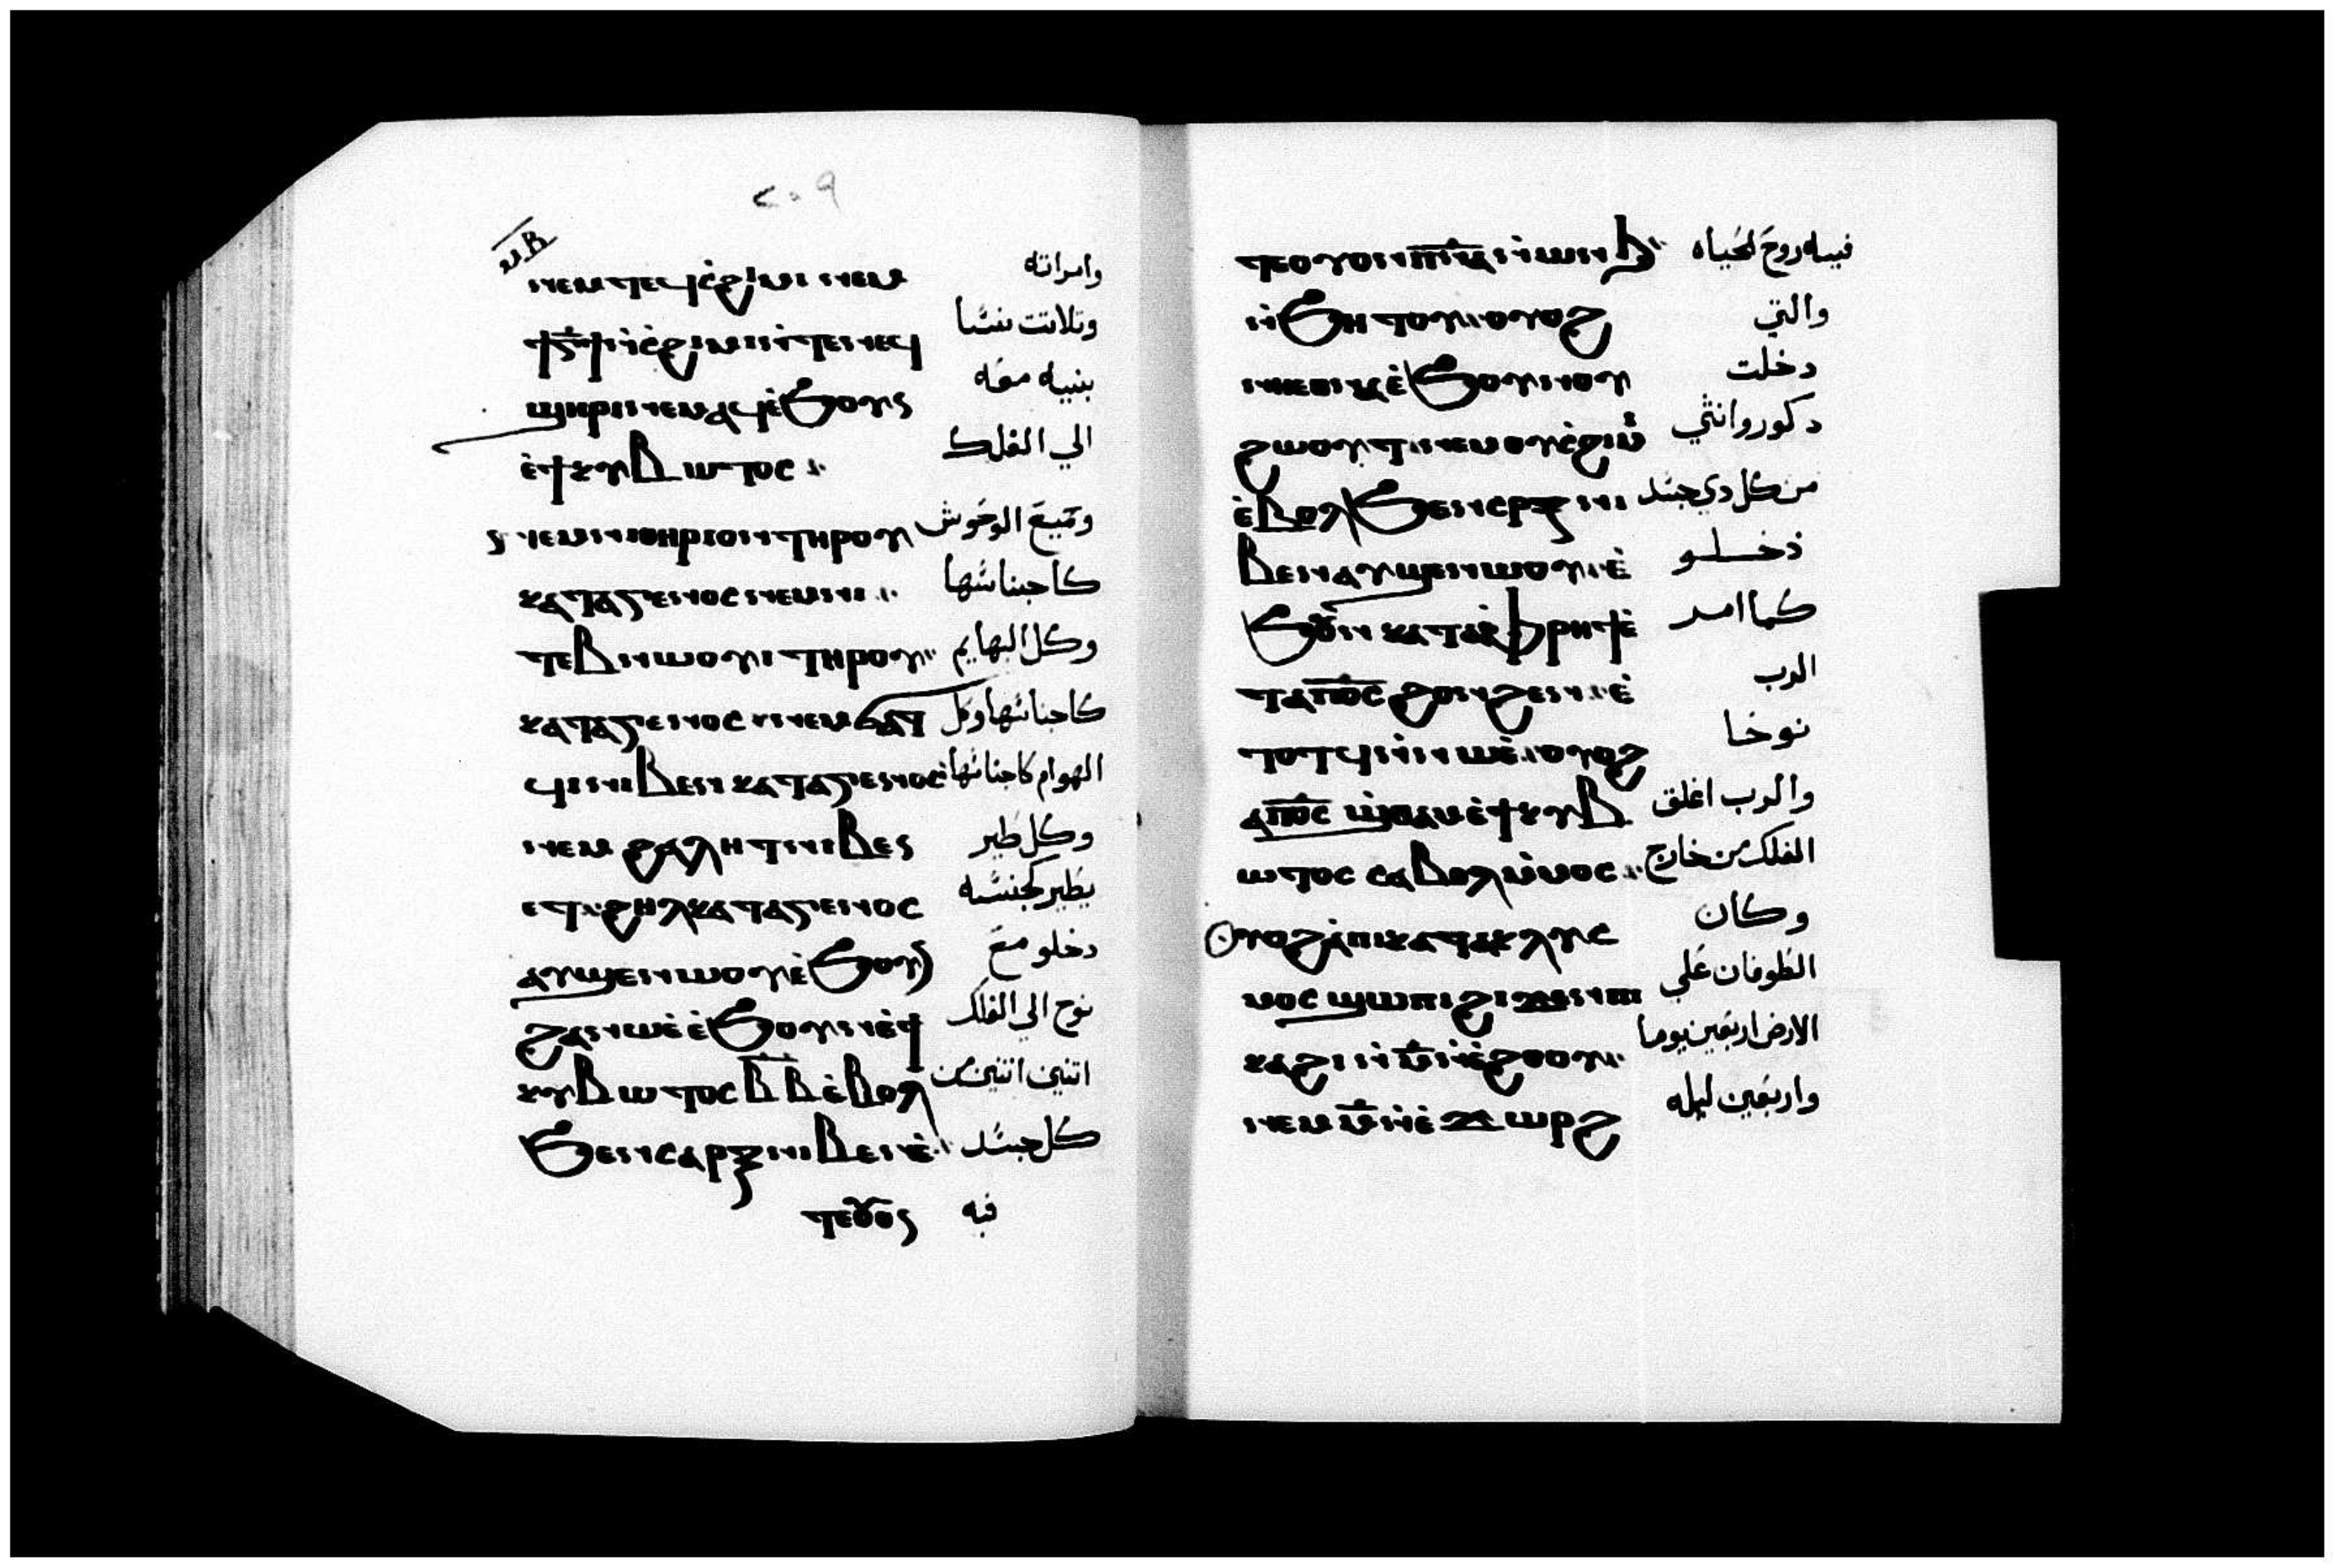 ⲙⲃ
ⲛⲉⲙ ⲧⲉϥⲥϩⲓⲙⲓ ⲛⲉⲙ وامراته
ϯⲅ̄ϯ ⲛ̀ⲥϩⲓⲙⲓ ⲛ̀ⲧⲉ ⲛⲉϥ وتلاتت نسا
ϣⲏⲣⲓ ⲛⲉⲙⲁϥ ⲉ̀ϧⲟⲩⲛ بنيه معه
ⲉ̀ϯⲕⲩⲃⲱⲧⲟⲥ الي الفلك
ⲛⲉⲙ ⲛⲓⲑⲏⲣⲓⲟⲛ ⲧⲏⲣⲟⲩ وجميع الوحوش
ⲕⲁⲧⲁⲅⲉⲛⲟⲥ ⲛⲉⲙ ⲛⲓ كاجناسها
ⲧⲉⲃⲛⲱⲟⲩⲓ ⲧⲏⲣⲟⲩ وكل البهايم
ⲕⲁⲧⲁⲅⲉⲛⲟⲥ ⲛⲉⲙ ϭⲁⲧ كاجناسها وكل
ϥⲓ ⲛⲓⲃⲉⲛ ⲕⲁⲧⲁⲅⲉⲛⲟⲥ الهوام كاجناسها
ⲛⲉⲙ ϩⲁⲗⲏⲧ ⲛⲓⲃⲉⲛ وكل طير
ⲉⲧϩⲏⲗ ⲕⲁⲧⲁⲅⲉⲛⲟⲥ يطير كجنسه
ⲁⲩϣⲉⲛⲱⲟⲩ ⲉ̀ϧⲟⲩⲛ دخلو مع
ϩⲁ ⲛⲱⲉ̀ ⲉ̀ϧⲟⲩⲛ ⲉ̀ϯ نوح الي الفلك
ⲕⲩⲃⲱⲧⲟⲥ ⲃ̄ ⲃ̄ ⲉ̀ⲃⲟⲗ اتنين اتنين من
ϧⲉⲛ ⲥⲁⲣⲝ ⲛⲓⲃⲉⲛ ⲉ̀ كل جسد
ⲧⲉⲟⲩⲟⲛ فيه
ⲧⲉⲟⲩⲟⲛ ⲡⲛⲁ̄ ⲛ̀ⲱⲛϧ فيه روح الحياه
ⲛ̀ϧⲏⲧⲟⲩ ⲟⲩⲟϩ والتي
ⲛⲏⲉⲑⲛⲁ ⲉ̀ϧⲟⲩⲛ ⲟⲩ دخلت
ϩⲱⲟⲩⲧ ⲛⲉⲙ ⲟⲩⲥϩⲓⲙⲓ دكور وانتي
ⲉ̀ⲃⲟⲗ ϧⲉⲛ ⲥⲣⲝ ⲛⲓ من كل دي جسد
ⲃⲉⲛ ⲁⲩϣⲉⲛⲱⲟⲩ ⲉ̀ دخلو
ϧⲟⲩⲛ ⲕⲁⲧⲁⲫⲣⲏϯ ⲉ̀ كما امر
ⲧⲁⲡⲟ̄ⲥ ϩⲟⲛϩⲉⲛ ⲉ̀ الرب
ⲧⲟⲧϥ ⲛ̀ⲛⲱⲉ̀ ⲟⲩⲟϩ نوحا
ⲁⲡⲟ̄ⲥ ϣⲑⲁⲙ ⲉ̀ϯⲕⲩⲃ والرب اغلق
ⲱⲧⲟⲥ ⲥⲁⲃⲟⲗ ⲙ̀ⲙⲟⲥ الفلك من خارج
ⲟⲩⲟϩ ⲁ̀ⲡⲓⲕⲁⲧⲁⲕⲗⲩⲥ وكان
ⲙⲟⲥ ϣⲱⲡⲓ ϩⲓϫⲉⲛ ⲡⲓ الطوفان علي
ⲕⲁϩⲓ ⲛ̀ⲙ̄ ⲛ̀ⲉ̀ϩⲟⲟⲩ الارض اربعين يوما
ⲛⲉⲙ ⲙ̄ ⲛ̀ⲉ̀ϫⲱⲣϩ واربعين ليله